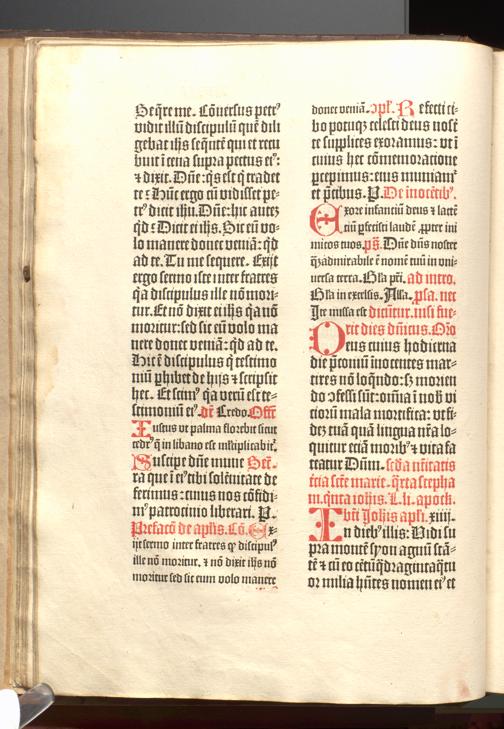 Seq̃re me. Cõuersus petrꝰ
vidit illũ discipulũ quẽ dili
gebat ihs sequẽtẽ qui et recu
buit ĩ cena supra pectus eiꝰ:
⁊ dixit. Dñe: q̃s est q̃ tradet
te: Hũc ergo cũ vidisset pe-
trꝰ dicit ihu. Dñe: hic autez
qd: Dicit ei ihs. Sic eũ vo-
lo manere donec veniã: qd
ad te. Tu me sequere. Exijt
ergo sermo iste inter fratres
q̃a discipulus ille nõ mori-
tur. Et nõ dixit ei ihs q̃a nõ
moritur: sed sic eũ volo ma
nere donec veniã: qd ad te.
Hic ẽ discipulus q̃ testimo
niũ ꝑhibet de hijs ⁊ scripsit
hec. Et scimꝰ q̃a verũ est te-
stimoniũ eiꝰ. dr̃ Credo. Offr̃
Iustus vt palma florebit sicut
cedrꝰ q̃ in libano est ml̃tiplicabit̃.
Suscipe dñe mune Secr̃.
ra que ĩ eiꝰ tibi solẽnitate de
ferimus: cuius nos cõfidi-
mꝰ patrocinio liberari. P.
Prefacõ de apl̃is. Cõ. Ex-
ijt sermo inter fratres qꝫ discipulꝰ
ille nõ moritur. ⁊ nõ dixit ihs nõ
moritur sed sic eum volo manere
donec veniã. ꝯpl̃. Refecti ci-
bo potuqꝫ celesti deus nost̃
te supplices exoramus: vt ĩ
cuius hec cõmemoracione
ꝑcepimus: eius muniamr̃
et p̃cibus. P. De ĩnocẽtibꝰ.
Ex ore infanciũ deus ⁊ lactẽ
ciũ ꝑfecisti laudẽ ꝓpter ini
micos tuos. pš. Dñe dñs noster
q̃ admirabile ẽ nomẽ tuũ in vni-
uersa terra. Gl̃a pr̃i. ad intro.
Gl̃a in excelsis. All̃a. p̃sa. nec
Ite missa est dicũtur. nisi fue-
rit dies dñicus. Or̃o
Deus cuius hodierna
die p̃coniũ innocentes mar-
tires nõ loq̃ndo: sꝫ morien
do ↄfessi sũt: oĩnia ĩ nob̃ vi
ciorũ mala mortifica: vt fi-
dez tuã quã lingua nr̃a lo-
quitur eciã moribꝰ ⁊ vita fa
teatur Dñm. scd̃a nr̃itatis
tercia scẽ marie. q̃rta stepha
ni. quita iohĩs. L. h. apock.
Ibr̃i Johĩs apl̃i. xiiij.
In diebꝰ illis: Vidi su
pra montẽ syon agnũ stã-
tẽ ⁊ cũ eo cẽtũ q̃dragintaq̃tu
or milia hñtes nomen eiꝰ et